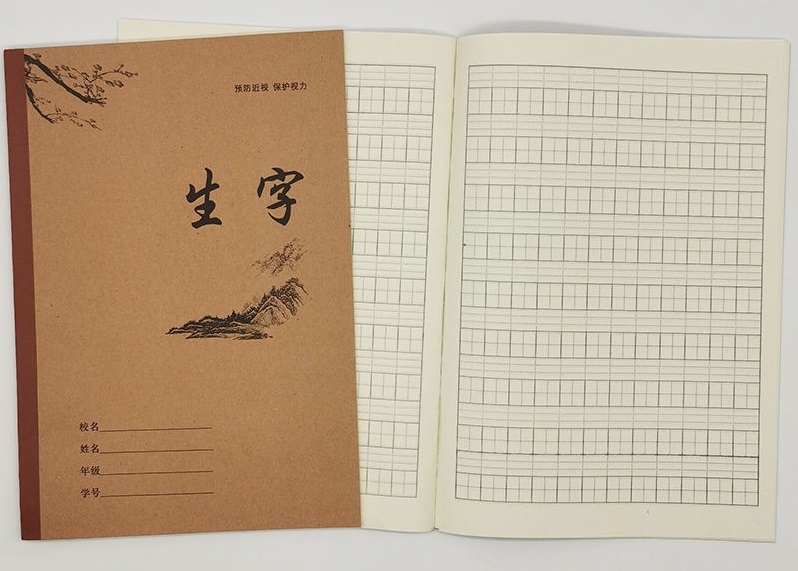 预防近视 保护视力
生字
校名
姓名
年级
学号